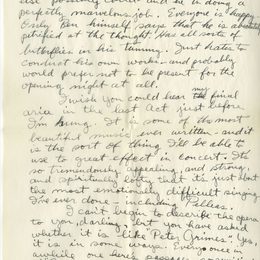 else possibly could and he is doing a
perfectly marvelous job. Everyone is happy.
Only Ben himself says that he is absolutely
petrified at the thought. Has all sorts of
butterflies in his tummy. Just hates to
conduct his own works - and probably
would prefer not to be present for the
opening night at all.
I wish you could hear my final
aria in the last act just before
I'm hung. It is some of the most
beautiful music ever written - and it
is the sort of thing I'll be able to
use to great effect in concert. It's
so tremendously appealing, and strong,
and spiritually lofty that it's just about
the most emotionally difficult singing
I've ever done - including "Pelleas."
I can't begin to describe the opera
to you, darling, but you have asked
whether it is like "Peter Grimes". Yes,
it is in some ways. Every once in
awhile one hears passages